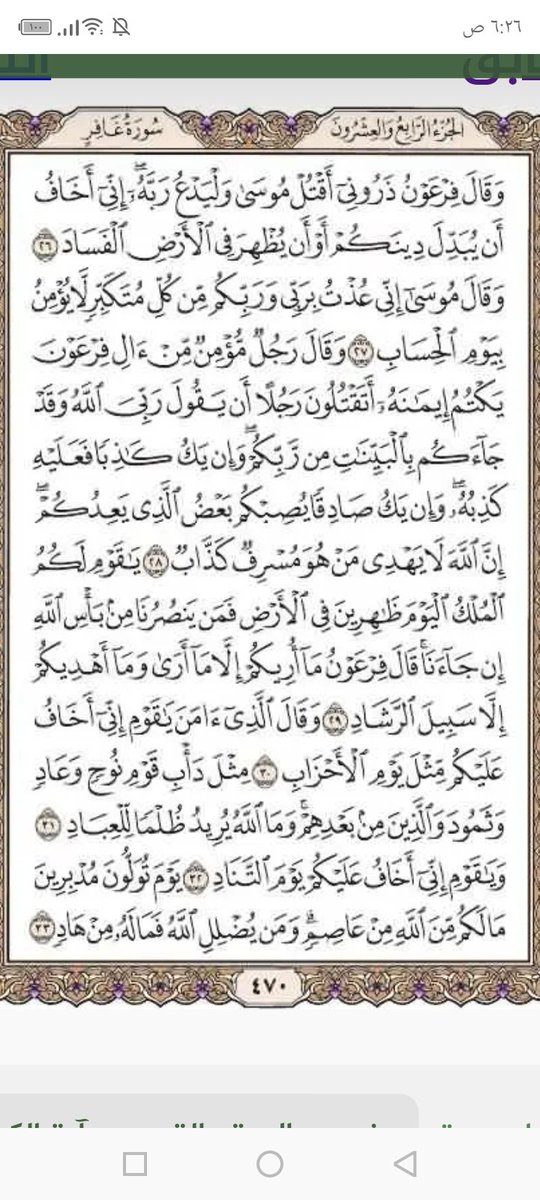 ٦:٢٦ ص
١٠٠
سُورَةُ غَافِرٍ
الجُزْءُ الرَّابِعُ وَالعِشْرُونَ
وَقَالَ فِرۡعَوۡنُ ذَرُونِيٓ أَقۡتُلۡ مُوسَىٰ وَلۡيَدۡعُ رَبَّهُۥٓۖ إِنِّيٓ أَخَافُ
أَن يُبَدِّلَ دِينَكُمۡ أَوۡ أَن يُظۡهِرَ فِي ٱلۡأَرۡضِ ٱلۡفَسَادَ ٢٦
وَقَالَ مُوسَىٰٓ إِنِّي عُذۡتُ بِرَبِّي وَرَبِّكُم مِّن كُلِّ مُتَكَبِّرٖ لَّا يُؤۡمِنُ
بِيَوۡمِ ٱلۡحِسَابِ ٢٧ وَقَالَ رَجُلٞ مُّؤۡمِنٞ مِّنۡ ءَالِ فِرۡعَوۡنَ
يَكۡتُمُ إِيمَٰنَهُۥٓ أَتَقۡتُلُونَ رَجُلًا أَن يَقُولَ رَبِّيَ ٱللَّهُ وَقَدۡ
جَآءَكُم بِٱلۡبَيِّنَٰتِ مِن رَّبِّكُمۡۖ وَإِن يَكُ كَٰذِبٗا فَعَلَيۡهِ
كَذِبُهُۥۖ وَإِن يَكُ صَادِقٗا يُصِبۡكُم بَعۡضُ ٱلَّذِي يَعِدُكُمۡۖ
إِنَّ ٱللَّهَ لَا يَهۡدِي مَنۡ هُوَ مُسۡرِفٞ كَذَّابٞ ٢٨ يَٰقَوۡمِ لَكُمُ
ٱلۡمُلۡكُ ٱلۡيَوۡمَ ظَٰهِرِينَ فِي ٱلۡأَرۡضِ فَمَن يَنصُرُنَا مِنۢ بَأۡسِ ٱللَّهِ
إِن جَآءَنَاۚ قَالَ فِرۡعَوۡنُ مَآ أُرِيكُمۡ إِلَّا مَآ أَرَىٰ وَمَآ أَهۡدِيكُمۡ
إِلَّا سَبِيلَ ٱلرَّشَادِ ٢٩ وَقَالَ ٱلَّذِيٓ ءَامَنَ يَٰقَوۡمِ إِنِّيٓ أَخَافُ
عَلَيۡكُم مِّثۡلَ يَوۡمِ ٱلۡأَحۡزَابِ ٣٠ مِثۡلَ دَأۡبِ قَوۡمِ نُوحٖ وَعَادٖ
وَثَمُودَ وَٱلَّذِينَ مِنۢ بَعۡدِهِمۡۚ وَمَا ٱللَّهُ يُرِيدُ ظُلۡمٗا لِّلۡعِبَادِ ٣١
وَيَٰقَوۡمِ إِنِّيٓ أَخَافُ عَلَيۡكُمۡ يَوۡمَ ٱلتَّنَادِ ٣٢ يَوۡمَ تُوَلُّونَ مُدۡبِرِينَ
مَا لَكُم مِّنَ ٱللَّهِ مِنۡ عَاصِمٖۗ وَمَن يُضۡلِلِ ٱللَّهُ فَمَا لَهُۥ مِنۡ هَادٖ ٣٣
٤٧٠